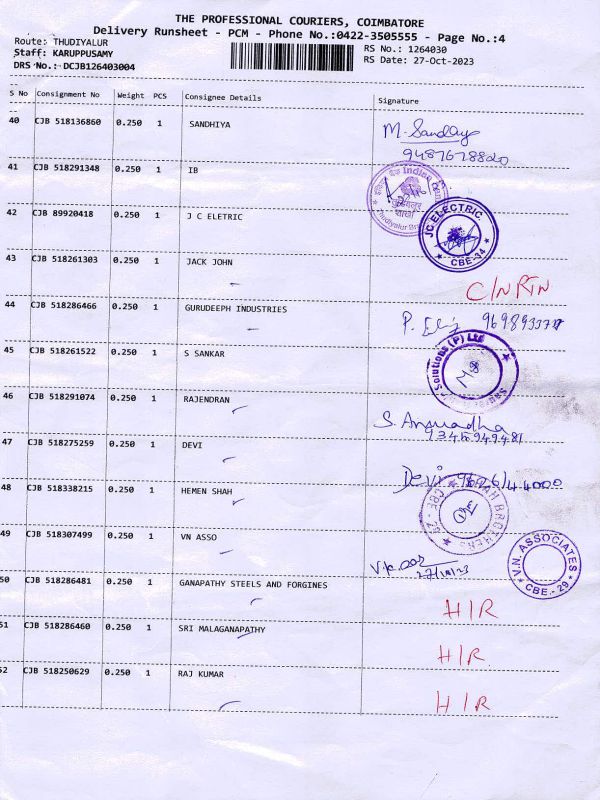 THE PROFESSIONAL COURIERS, COIMBATORE
Delivery Runsheet - PCM - Phone No.:0422-3505555 - Page No.:4
Route: THUDIYALUR
Staff: KARUPPUSAMY
DRS No.: DCJB126403004
RS No.: 1264030
RS Date: 27-Oct-2023
S No Consignment No Weight PCS Consignee Details Signature
40 CJB 518136860 0.250 1 SANDHIYA M. Sandhya
9487678820
41 CJB 518291348 0.250 1 IB
Indian
Thudiyalur
42 CJB 89920418 0.250 1 J C ELETRIC
JC ELECTRIC
CBE-34
43 CJB 518261303 0.250 1 JACK JOHN C/N RTN
44 CJB 518286466 0.250 1 GURUDEEPH INDUSTRIES P.
45 CJB 518261522 0.250 1 S SANKAR
Solutions (P) Ltd
46 CJB 518291074 0.250 1 RAJENDRAN S. Anuradha
9345949481
47 CJB 518275259 0.250 1 DEVI Devi
48 CJB 518338215 0.250 1 HEMEN SHAH
BROTHERS
CBE - 29
49 CJB 518307499 0.250 1 VN ASSO
27/10/23
V.N. ASSOCIATES
CBE.- 29
50 CJB 518286481 0.250 1 GANAPATHY STEELS AND FORGINES H/R
51 CJB 518286460 0.250 1 SRI MALAGANAPATHY H/R
52 CJB 518250629 0.250 1 RAJ KUMAR H/R